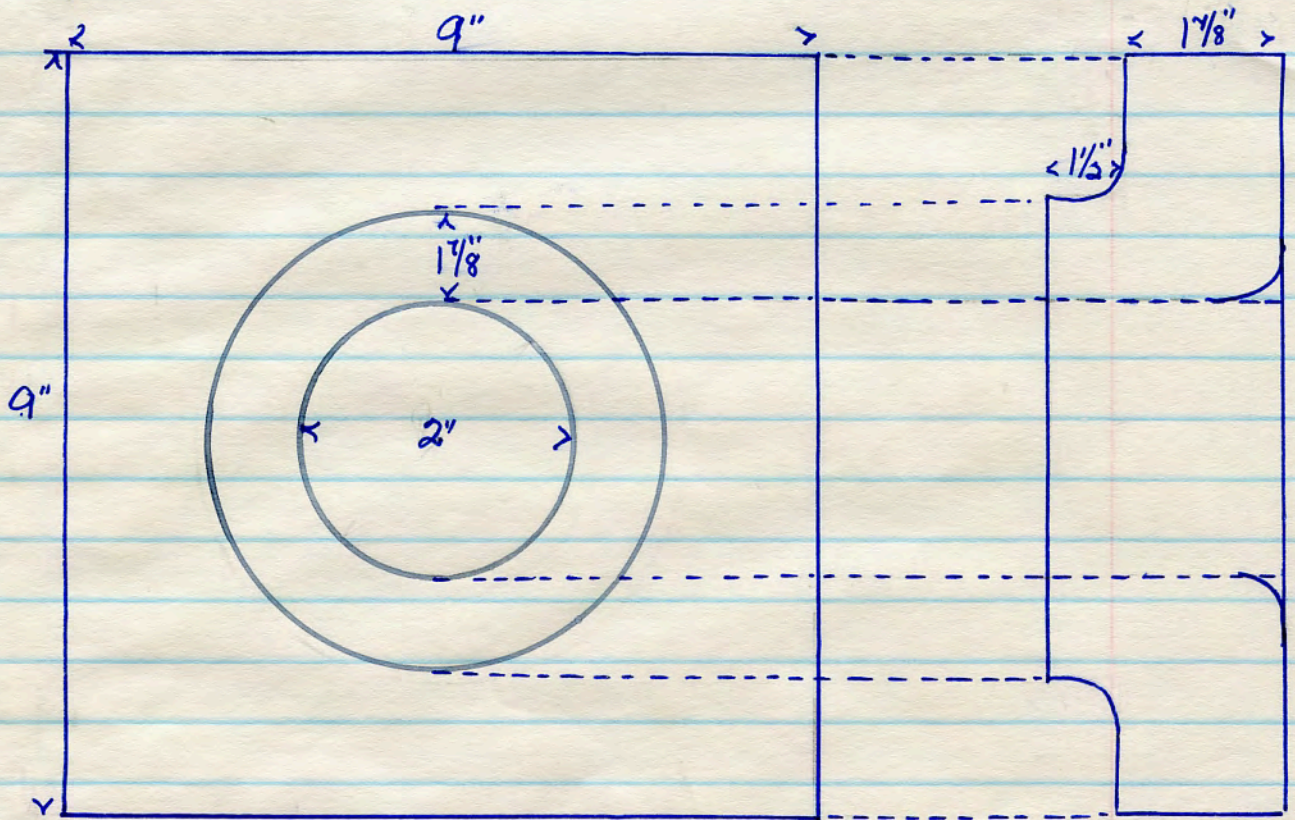 9"
1 7/8"
1 1/2"
1 7/8"
9"
2"